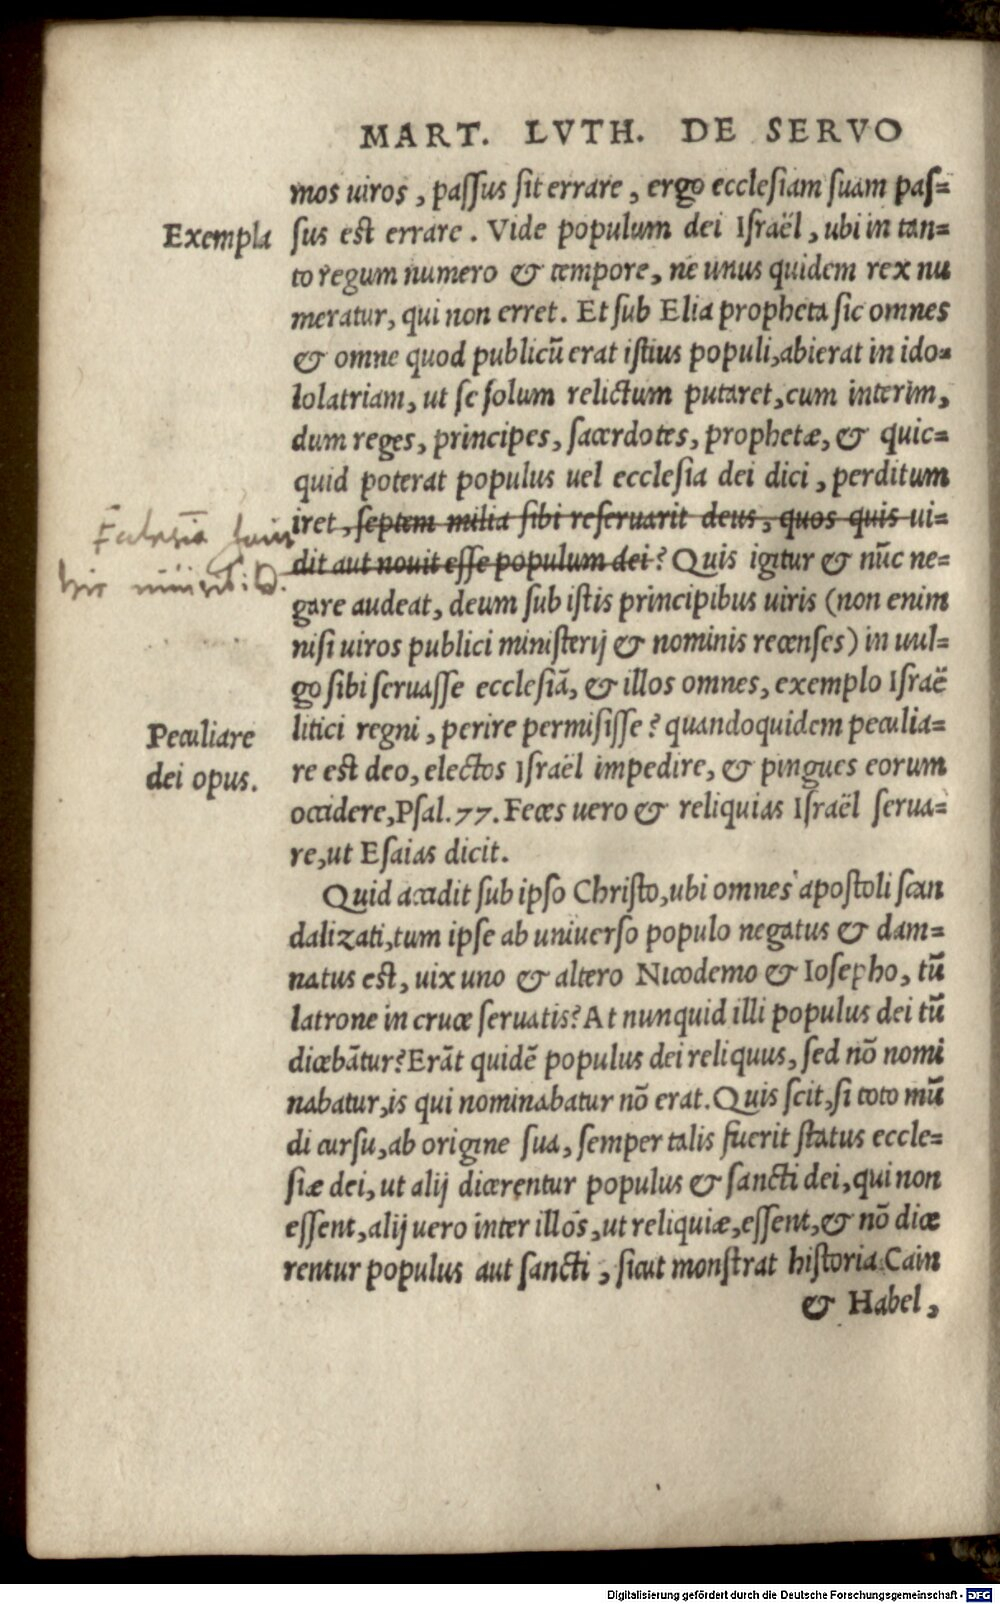 MART. LVTH. DE SERVO
mos uiros, passus sit errare, ergo ecclesiam suam pas=
Exempla
sus est errare. Vide populum dei Israël, ubi in tan=
to regum numero & tempore, ne unus quidem rex nu
meratur, qui non erret. Et sub Elia propheta sic omnes
& omne quod publicũ erat istius populi, abierat in ido=
lolatriam, ut se solum relictum putaret, cum interim,
dum reges, principes, sacerdotes, prophetæ, & quic=
quid poterat populus uel ecclesia dei dici, perditum
iret, septem milia sibi reseruarit deus, quos quis ui=
dit aut nouit esse populum dei? Quis igitur & nũc ne=
hic
gare audeat, deum sub istis principibus uiris (non enim
nisi uiros publici ministerij & nominis recenses) in uul=
go sibi seruasse ecclesiã, & illos omnes, exemplo Israë
litici regni, perire permisisse? quandoquidem peculia=
Peculiare
dei opus.
re est deo, electos Israël impedire, & pingues eorum
occidere, Psal. 77. Feces uero & reliquias Israël serua=
re, ut Esaias dicit.
Quid accidit sub ipso Christo, ubi omnes apostoli scan
dalizati, tum ipse ab uniuerso populo negatus & dam=
natus est, uix uno & altero Nicodemo & Iosepho, tũ
latrone in cruce seruatis? At nunquid illi populus dei tũ
dicebãtur? Erãt quidẽ populus dei reliquus, sed nõ nomi
nabatur, is qui nominabatur nõ erat. Quis scit, si toto mũ
di cursu, ab origine sua, semper talis fuerit status eccle=
siæ dei, ut alij dicerentur populus & sancti dei, qui non
essent, alij uero inter illos, ut reliquiæ, essent, & nõ dice
rentur populus aut sancti, sicut monstrat historia Cain
& Habel,
Digitalisierung gefördert durch die Deutsche Forschungsgemeinschaft - DFG